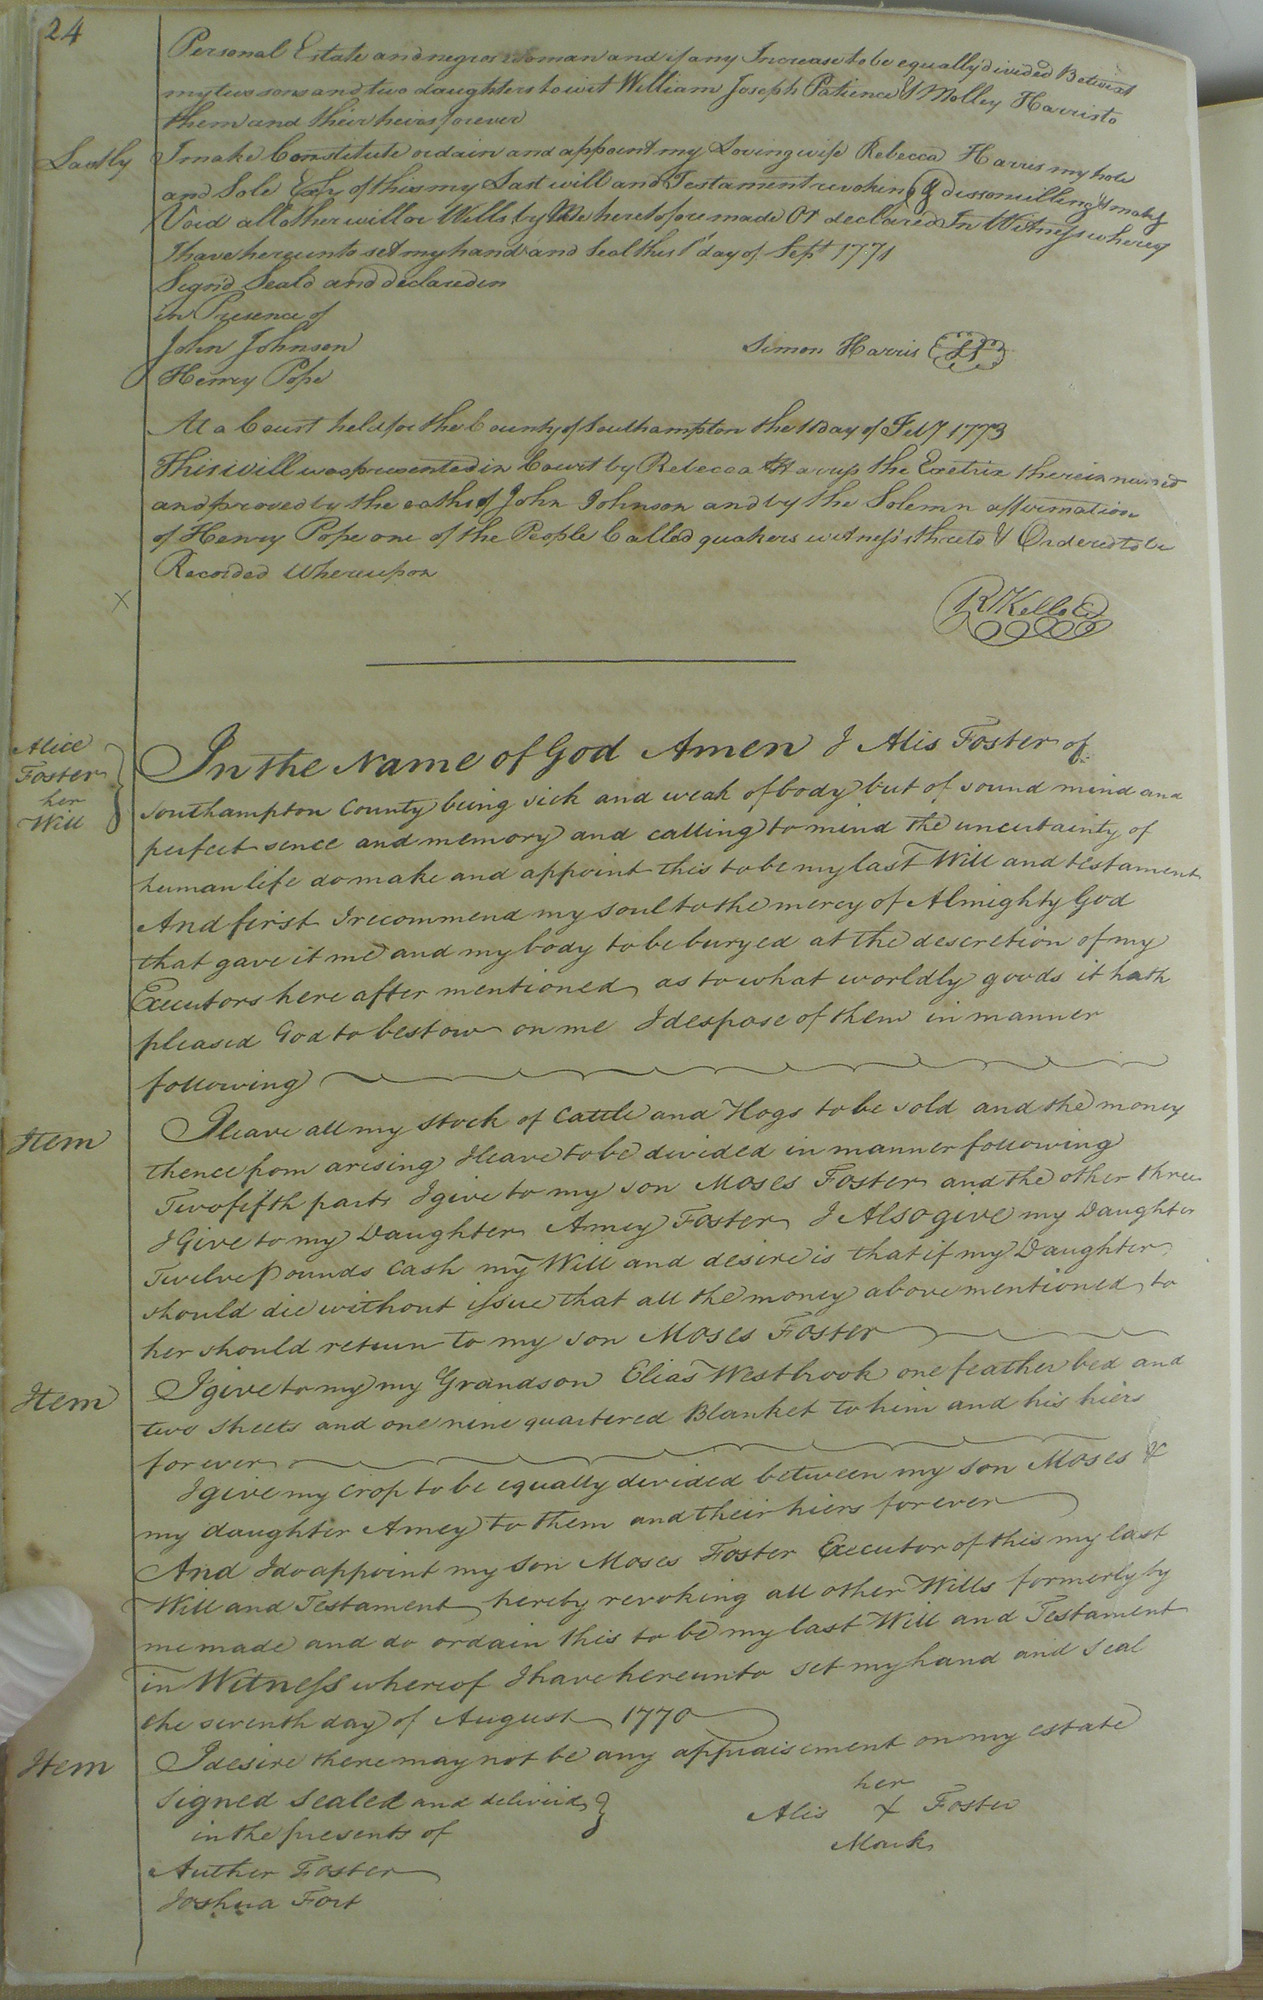 24
Personal Estate and negroe woman and if any Increase to be equally divided Betwixt
my two sons and two daughters to wit William Joseph Patience & Molley Harris to
them and their heirs forever
Lastly I make Constitute ordain and appoint my Loving wife Rebecca Harris my hole
and Sole Exy of this my Last will and Testament revoking & dissonulling & making
Void all other will or Wills by Me heretofore made Or declared In Witness whereof
I have hereunto set my hand and Seal this 1st day of Sept 1771
Segn'd Seal'd and declared in
in Presence of
John Johnson
Simon Harris LS
Henry Pope
At a Court held for the County of Southampton the 11 day of Feby 1773
This will was presented in Court by Rebecca Harris the Exetrix therein named
and proved by the oaths of John Johnson and by the Solemn affirmation
of Henry Pope one of the People Called quakers witness's thereto & Ordered to be
Recorded Whereupon
X
R Kello Cl
Alice
Foster
her
Will
In the Name of God Amen I Alis Foster of
Southampton County being sick and weak of body but of sound mind and
perfect sence and memory and calling to mind the uncertainty of
human life do make and appoint this to be my last Will and testament
And first I recommend my soul to the mercy of Almighty God
that gave it me and my body to be buryed at the descretion of my
Executors here after mentioned as to what worldly goods it hath
pleased God to bestow on me I despose of them in manner
following
Item I leave all my stock of Cattle and Hogs to be sold and the money
thence from arising I leave to be divided in manner following
Two fifth parts I give to my son Moses Foster and the other three
I Give to my Daughter Amey Foster I Also give my Daughter
Twelve Pounds Cash my Will and desire is that if my Daughter
should die without issue that all the money above mentioned to
her should return to my son Moses Foster
Item I give to my my Grandson Elias Westbrook one feather bed and
two sheets and one nine quartered Blanket to him and his hiers
forever
I give my crop to be equally devided between my son Moses &
my daughter Amey to them and their hiers forever
And I do appoint my son Moses Foster Executor of this my last
Will and Testament hereby revoking all other Wills formerly by
me made and do ordain this to be my last Will and Testament
in Witness whereof I have hereunto set my hand and seal
the seventh day of August 1770
Item I desire there may not be any appraisement on my estate
Signed Sealed and deliverid
her
in the presents of
Alis X Foster
Mark
Auther Foster
Joshua Fort